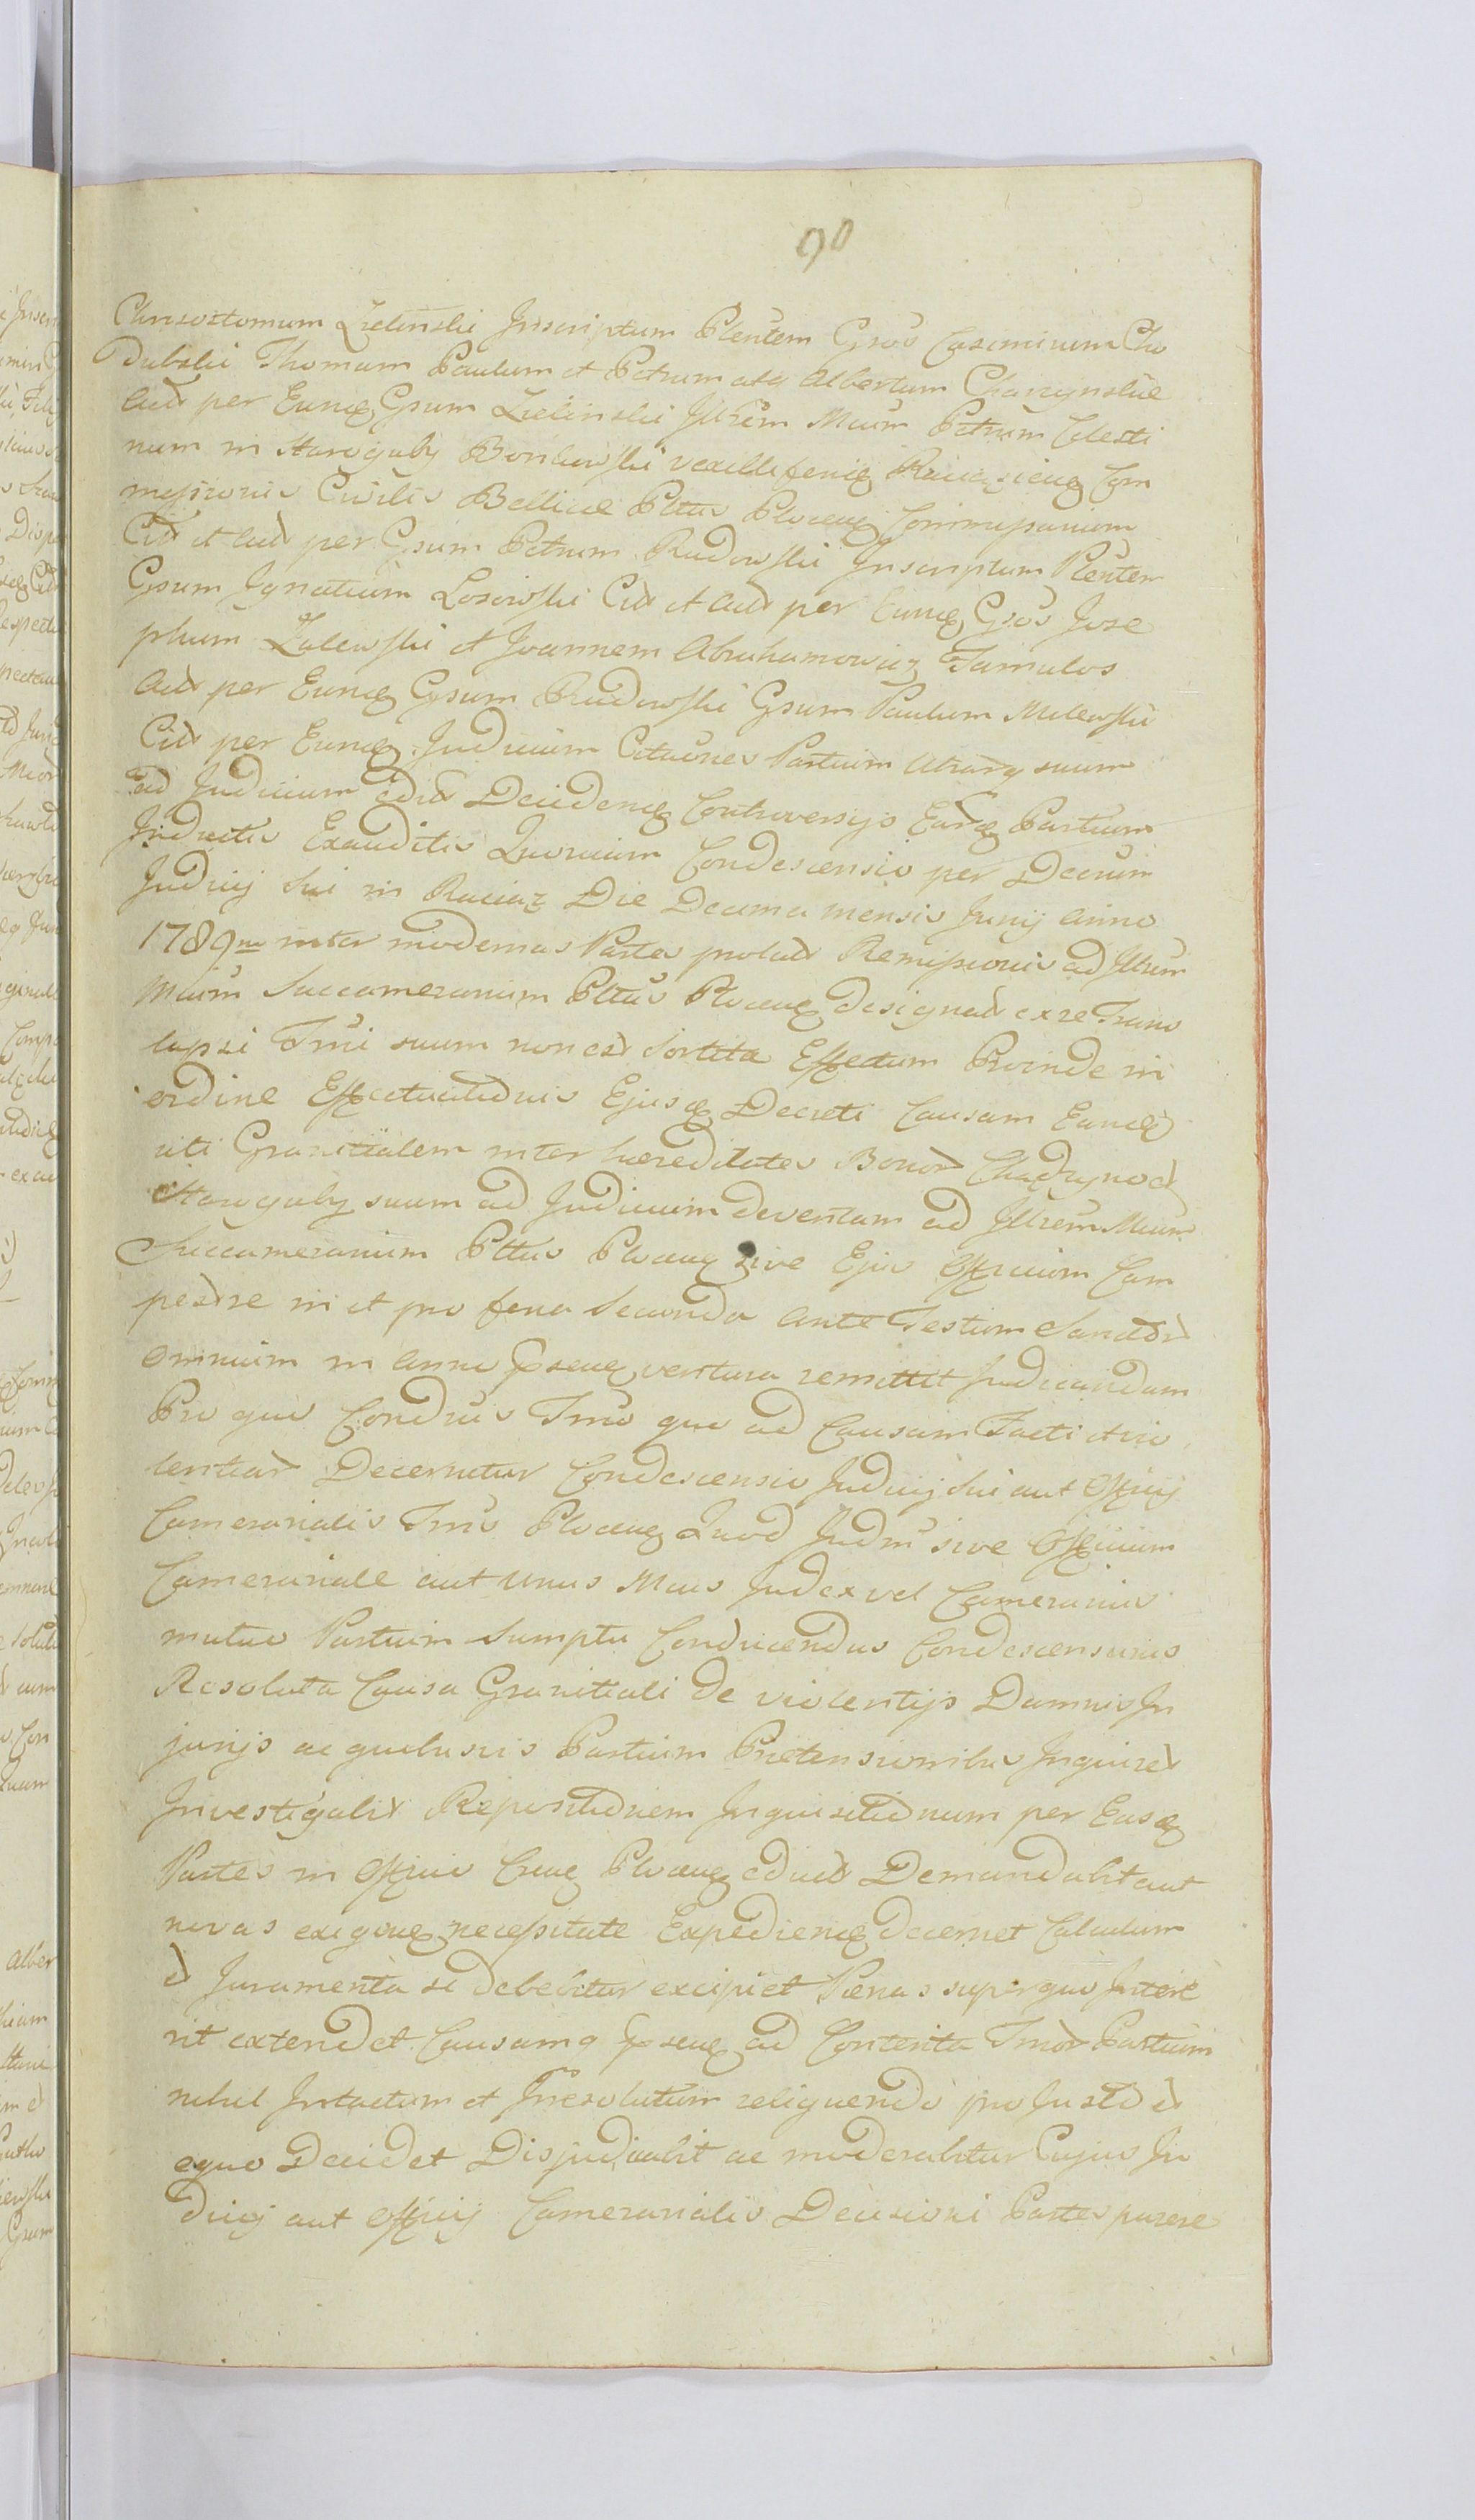 90
Chrisostomum Zielinski Inscriptum Plentem Gsos Casimirum Cho
dubski Thomam Paulum et Petrum ata Albertum Charzynskie
Acts per Eundq Gsum Zielinski Illrem Mcum Petrum Celesti
num in Staroguby Bonkowski vexilliferiq Raciązieng Com
missionis Civilis Bellicae Pttus Ploceng Commissarium
Cits et Acts per Gsum Petrum Rudowski Inscriptum Plentem
Gsum Ignatium Łosiowski Cits et Acts per Eunq Gsos Jose
phum Zalewski et Joannem Abrahamowicz Famulos
Acts per Eunq Gsum Rudowski Gsum Paulum Milewski
Cits per Eunq Judicium Citaones Partium Utrarq suum
ad Judicium edits Decidenq Controversijs Earq Partium
Inductis Exauditis Quoniam Condescensio per Decrum
Judicij Sui in Raciąz Die Decima mensis Junij Anno
1789no inter modernas Partes prolats Remissionis ad Illrem
Mcum Succamerarium Pttus Ploceng designats ex re Trans
lapsi Tmi suum non est Sortita Effectum Proinde in
ordine Effectuationis Ejusq Decreti Causam Eandq
uti Granitialem inter haereditates Bonor Chądzyno et
Staroguby suum ad Judicium deventam ad Illrem Mcum
Succamerarium Pttus Ploceng sive Ejus Officium Cam
pestre in et pro feria Secunda ante Festum Sanctor
Omnium in Anno pseng ventura remittit Judicandam
Pro quo Condicis Tmo quo ad Causam Facti et vio
lentiar Decernitur Condescensio Judicij Sui aut Officij
Camerarialis Trris Ploceng Quod Judm sive Officium
Camerariale aut unus Mcus Judex vel Camerarius
mutuo Partium Sumptu Conducendus Condescensurus
Resoluta Causa Granitiali de violentijs Damnis In
jurijs ac quibusvis Partium Pretensionibus Inquiret
Investigabit Repositionem Inquisitionum per Easq
Partes in Officio Crenq Ploceng educts Demandabit aut
novas exigenq necessitate Expedienq decernet Calculum
et Juramenta si debebitur excipiet Paenas super quo Intere
rit extendet Causamq pseng ad Contenta Tmor Partium
nihil Intactum et Irresolutum reliquendo pro Justo et
equo Decidet Disjudicabit ac moderabitur Cujus Ju
dicij aut Officij Camerarialis Decisioni Partes parere